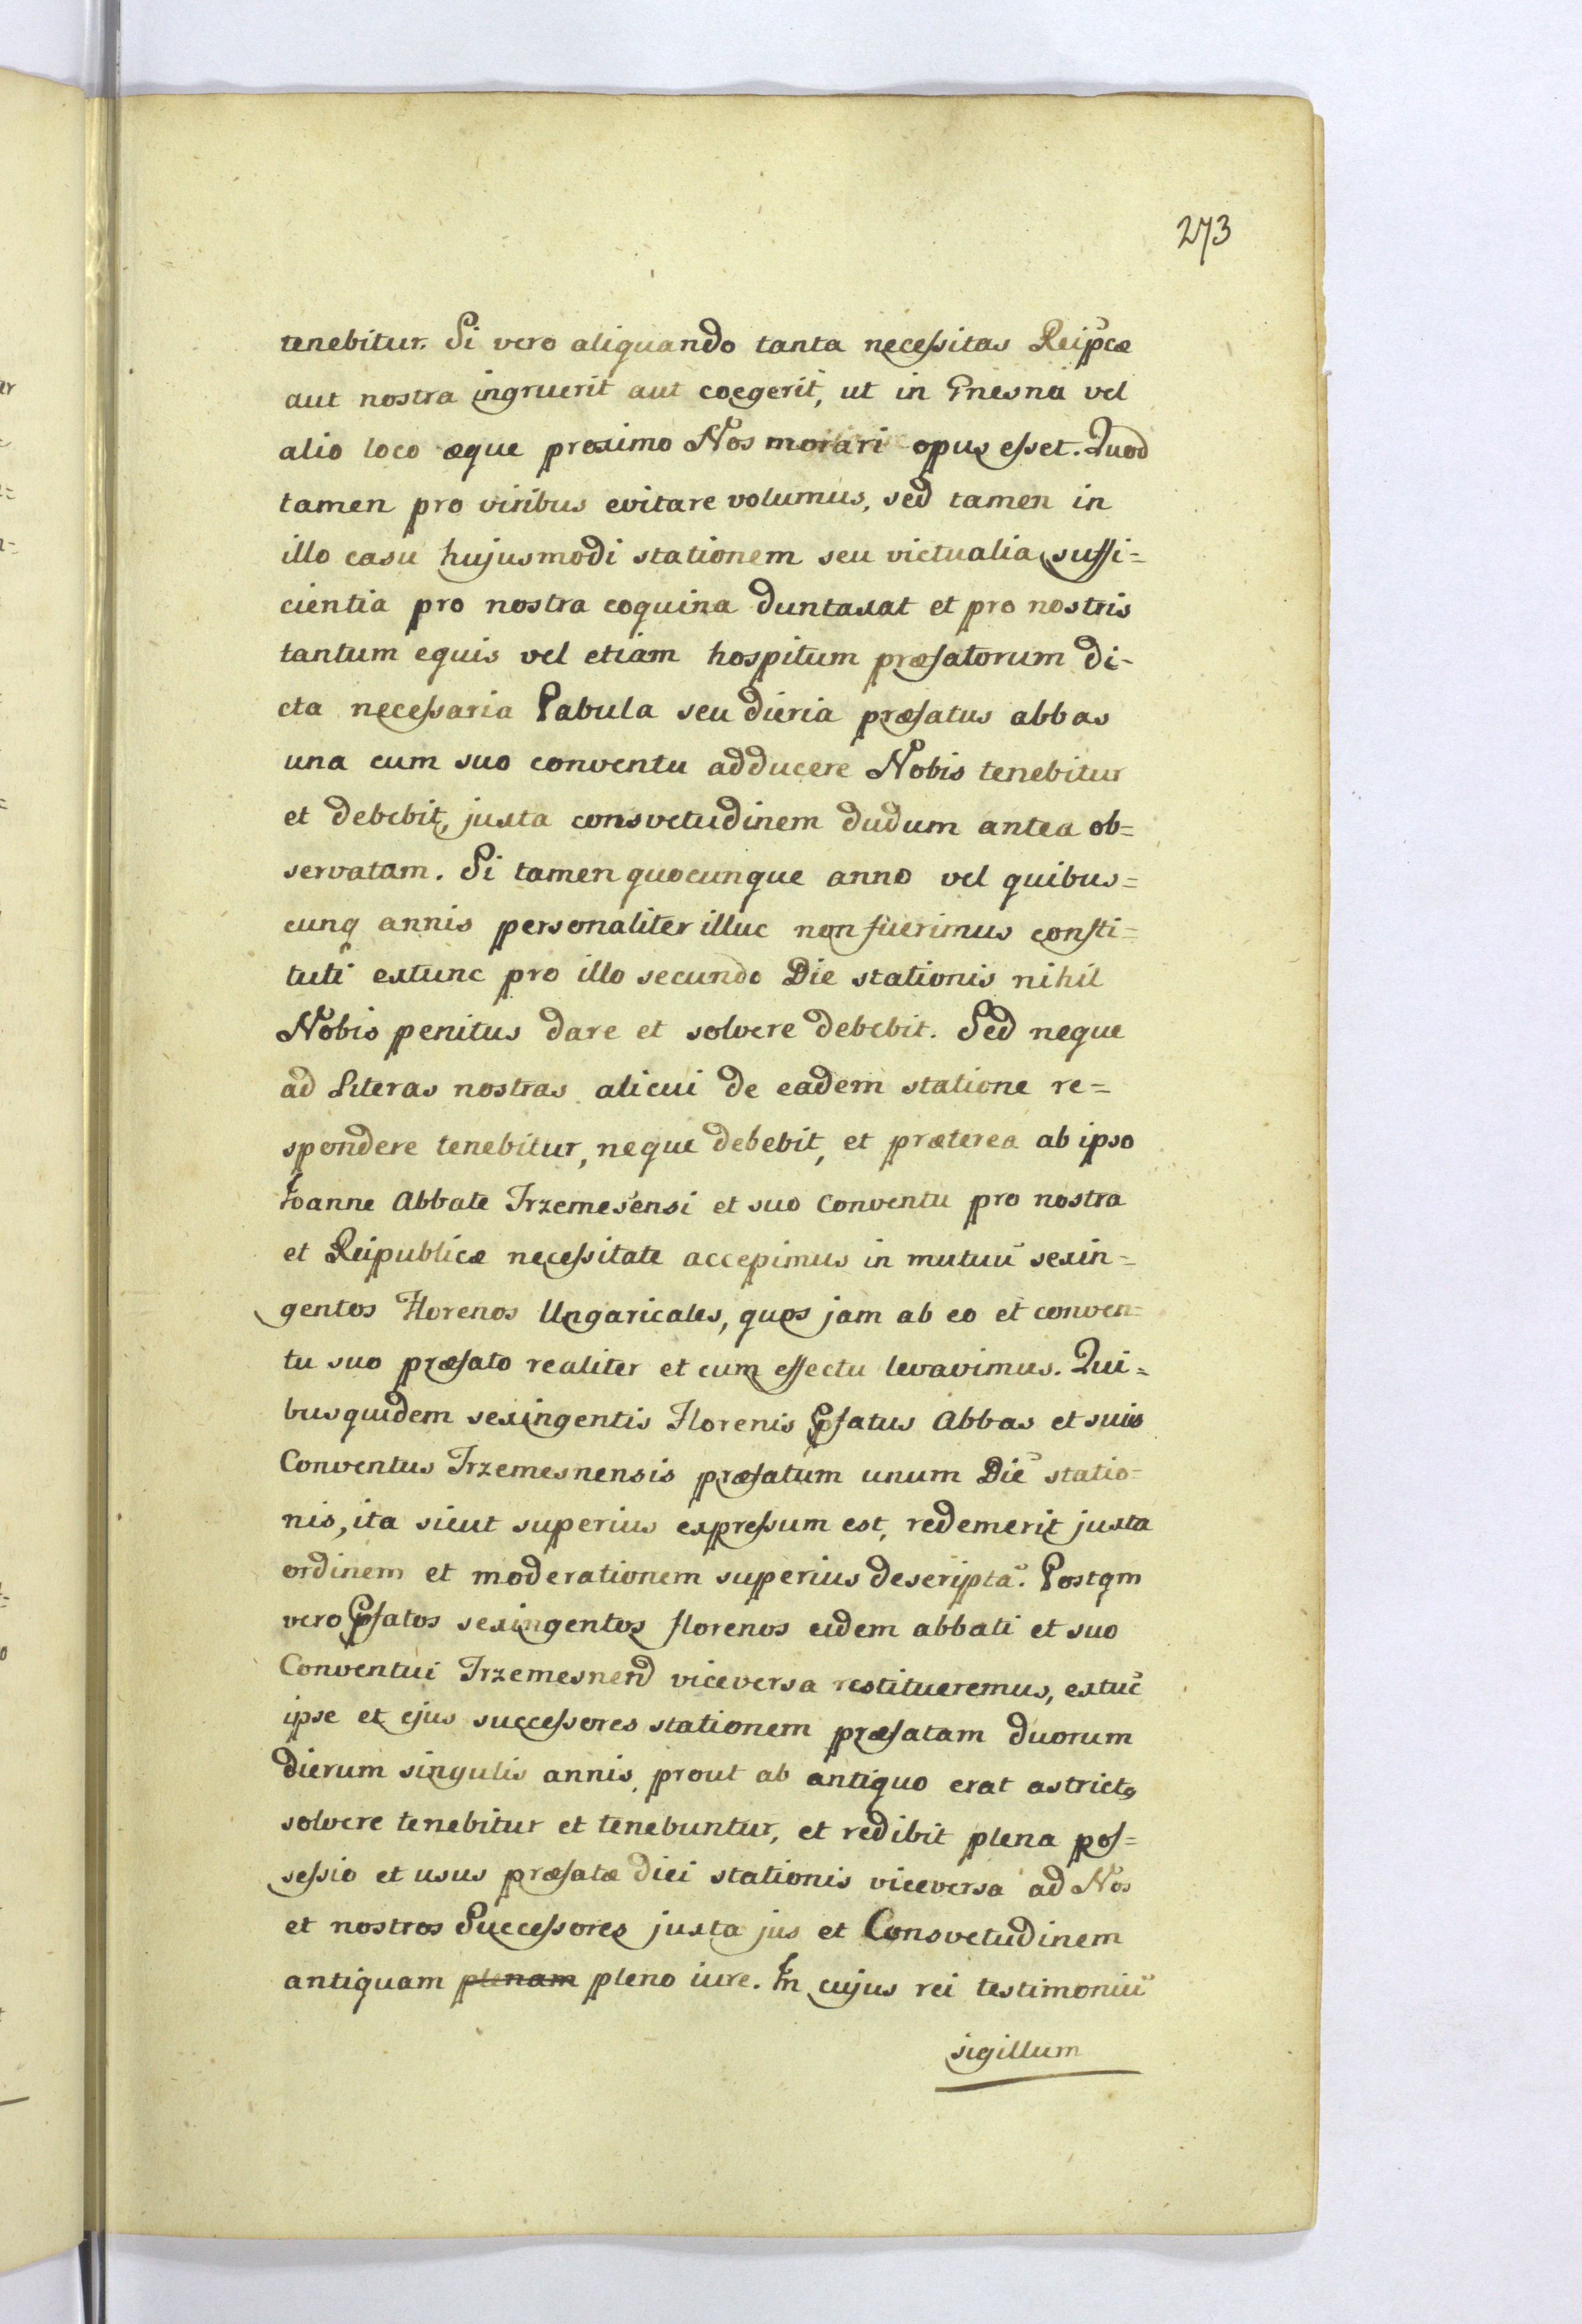 273
tenebitur. Si vero aliquando tanta necessitas Reipcæ
aut nostra ingruerit aut coegerit, ut in Gnesna vel
alio loco æque proximo Nos morari opus esset. Quod
tamen pro viribus evitare volumus, sed tamen in
illo casu hujusmodi stationem seu victualia suffi=
cientia pro nostra coquina duntaxat et pro nostris
tantum equis vel etiam hospitum præfatorum di-
cta necessaria Pabula seu dieria præfatus abbas
una cum suo conventu adducere Nobis tenebitur
et debebit, juxta consvetudinem dudum antea ob=
servatam. Si tamen quocunque anno vel quibus=
cunq annis personaliter illuc non fuerimus consti=
tuti extunc pro illo secundo Die stationis nihil
Nobis penitus dare et solvere debebit. Sed neque
ad Literas nostras alicui de eadem statione re=
spondere tenebitur, neque debebit, et præterea ab ipso
Ioanne Abbate Trzemesensi et suo Conventu pro nostra
et Reipublicæ necessitate accepimus in mutuū sexin=
gentos Florenos Ungaricales, quos jam ab eo et conven=
tu suo præfato realiter et cum effectu levavimus. Qui=
busquidem sexingentis Florenis Pfatus Abbas et suis
Conventus Trzemesnensis præfatum unum Diē statio=
nis, ita sicut superius expressum est, redemerit juxta
ordinem et moderationem superius descriptā. Postqm
vero Pfatos sexingentos florenos eidem abbati et suo
Conventui Trzemesnen viceversa restitueremus, extūc
ipse et ejus successores stationem præfatam duorum
dierum singulis annis, prout ab antiquo erat astrictꝯ
solvere tenebitur et tenebuntur, et redibit plena pos=
sessio et usus præfatæ diei stationis viceversa ad Nos
et nostros Successores juxta jus et Consvetudinem
antiquam plenam pleno iure. In cujus rei testimoniū
sigillum